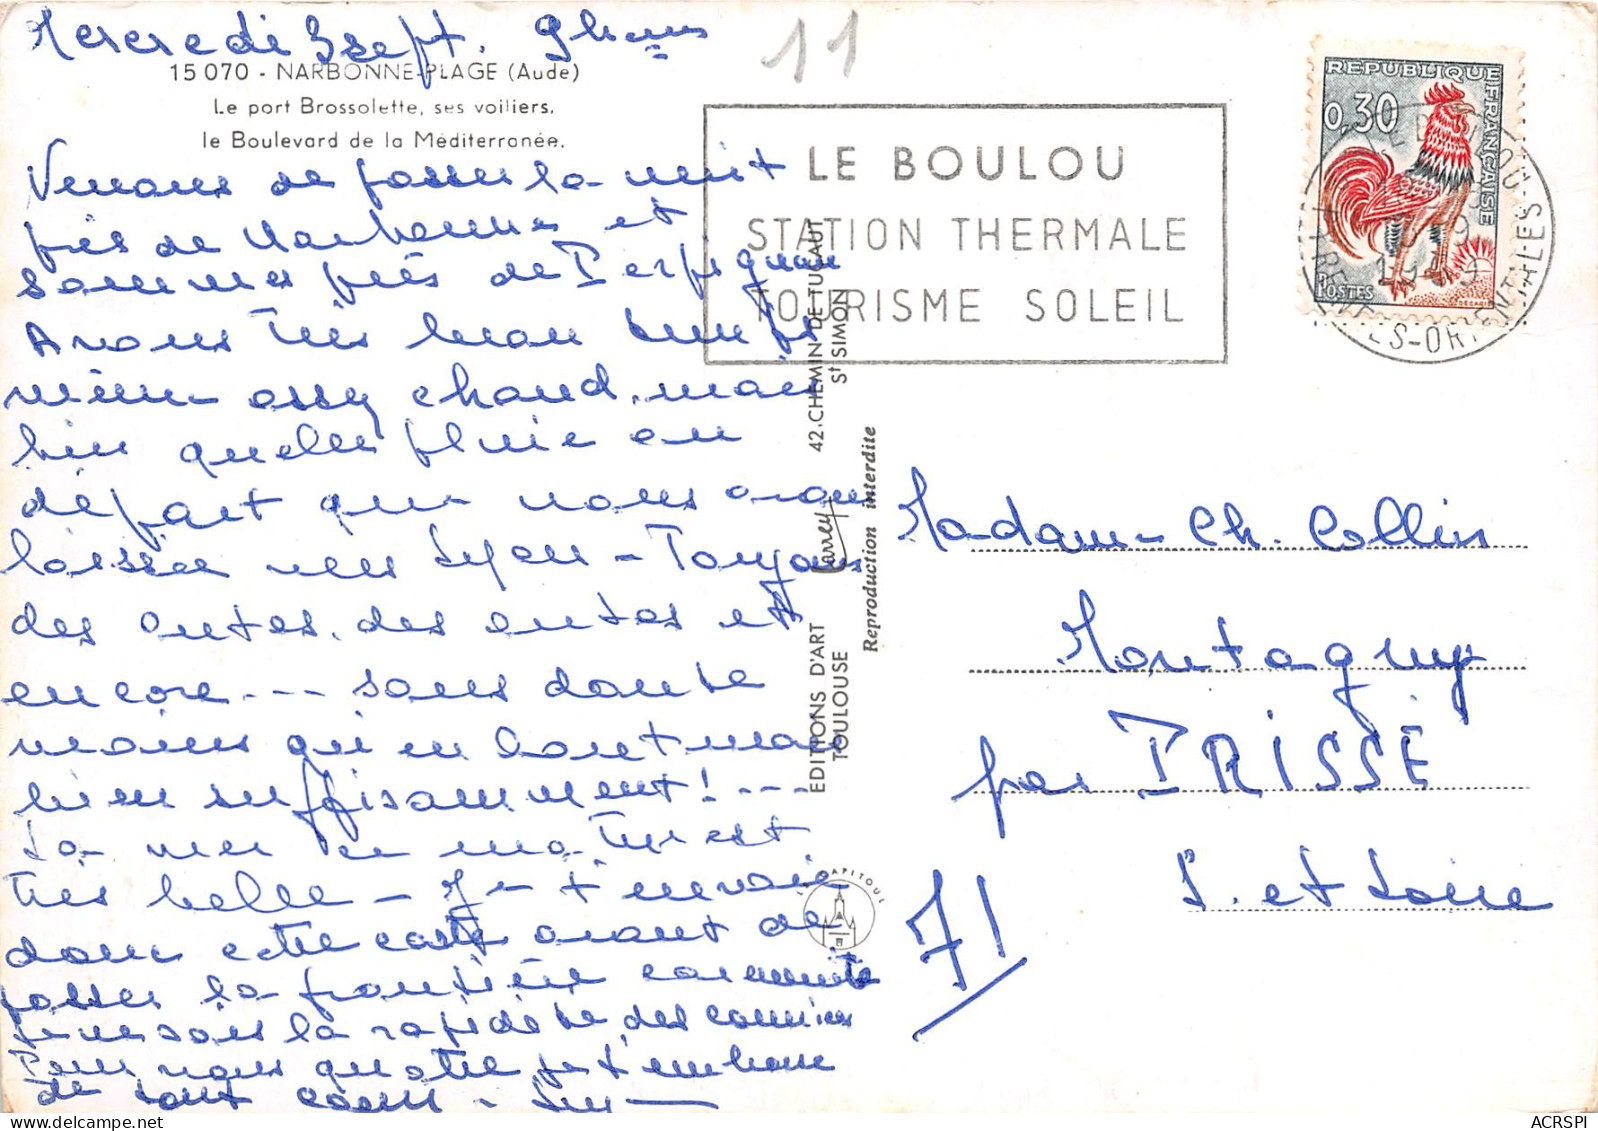 Mercredi 3 sept. 9 heures
11
15 070 - NARBONNE-PLAGE (Aude)
Le port Brossolette, ses voiliers,
le Boulevard de la Méditerranée.
Venons de passer la nuit
près de Narbonne et
sommes près de Perpignan
Avons très beau temps
même assez chaud, mais
bien quelle pluie au
départ que nous avons
laissée vers Lyon - Toujours
des autos, des autos et
encore --- sans doute
moins qu'en août mais
bien suffisamment! ---
La mer ce matin est
très belle - Je t'envoie
donc cette carte avant de
passer la frontière car ensuite
je ne sais la rapidité des courriers
Pour nous quatre je t'embrasse
de tout coeur -
LE BOULOU
STATION THERMALE
TOURISME SOLEIL
REPUBLIQUE FRANÇAISE
0,30
POSTES
DECARIS
LE BOULOU
1969
PYRENEES-ORIENTALES
EDITIONS D'ART 42. CHEMIN DE TUCAUT
TOULOUSE St SIMON
Larrey
Reproduction interdite
LE CAPITOUL
Madame Ch. Collin
Montagny
par PRISSÉ
S. et Loire
71
ACRSPI